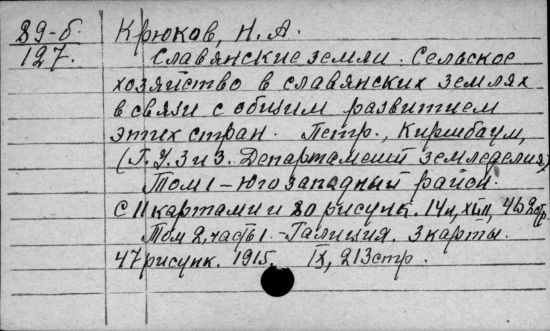 89-б. Крюков, Н. А.
127. Славянские земли. Сельское
хозяйство в славянских землях
в связи с общим развитием
этих стран. Петр., Киршбаум,
(Г. У. З и З. Департамент земледелия)
Том 1 - Юго западный район.
С 11 картами и 80 рисунк. 14н, XLII, 462 стр.
Том 2, часть 1. - Галиция. 3 карты.
47 рисунк. 1915. IX, 213 стр.